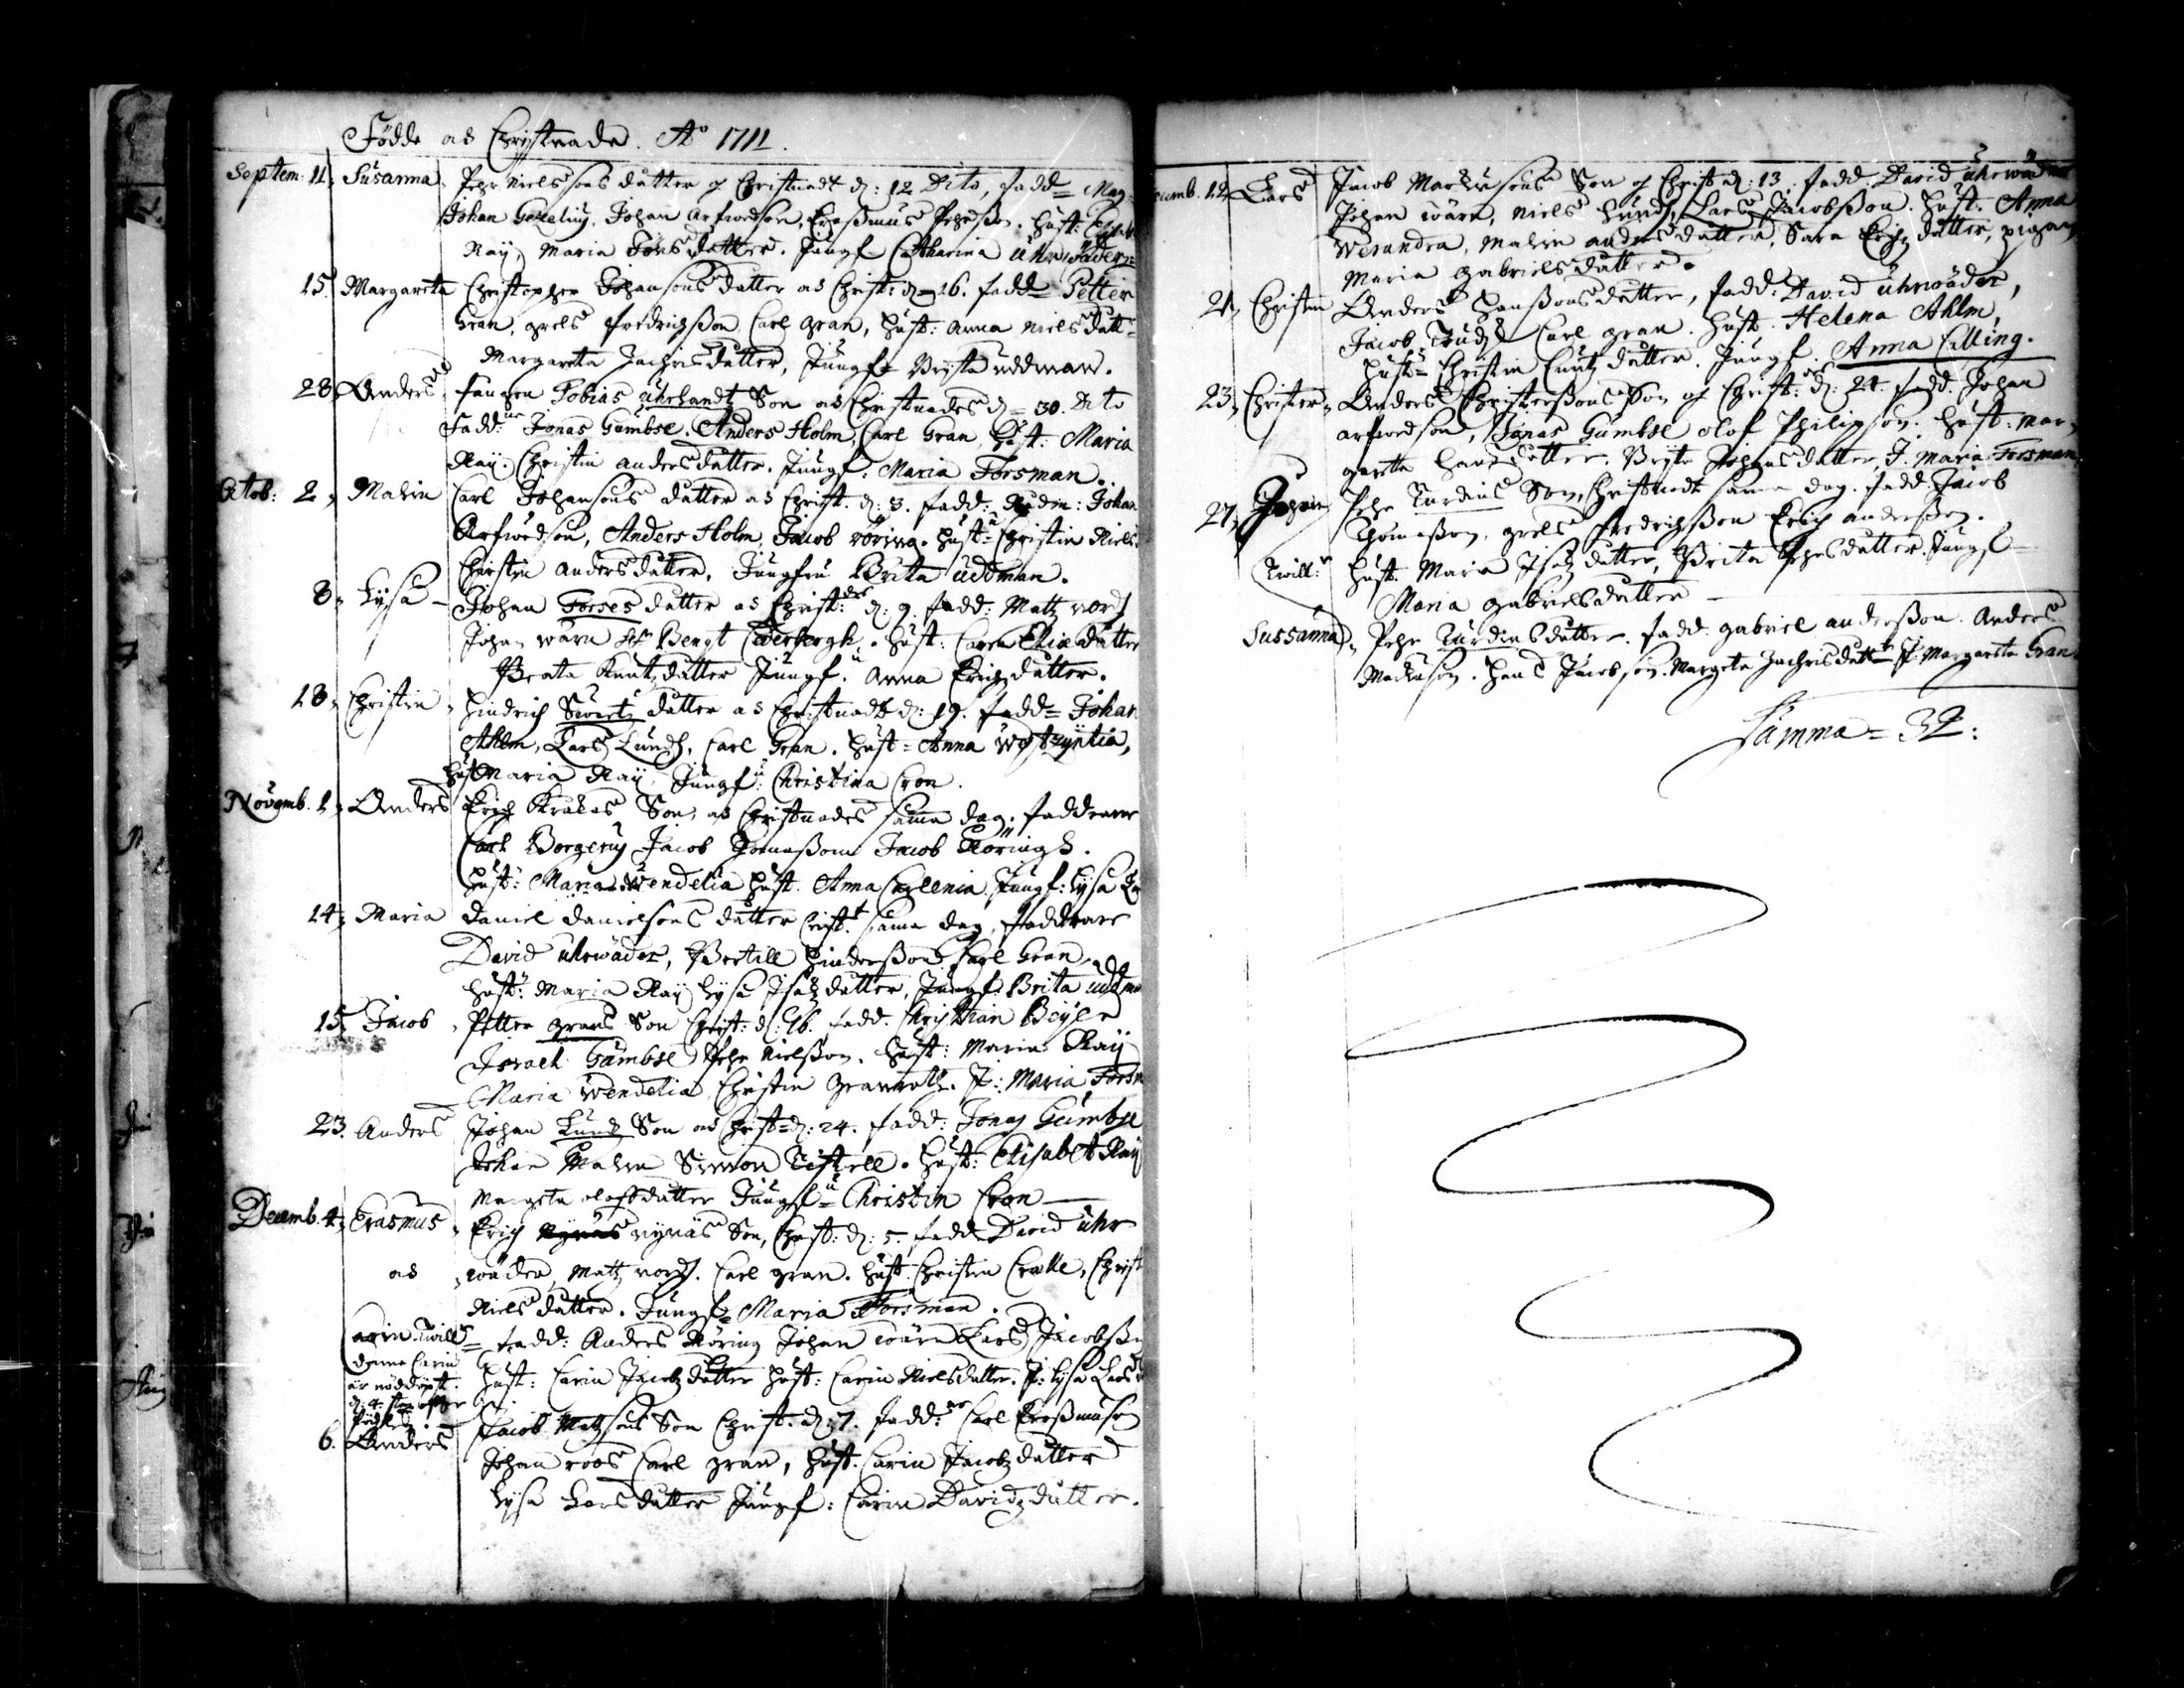 Födde as Christnade. Ao 1711.
Septem: 11, Susanna. Pehr Nielssons dutter och Christnadt d: 12 Dito, fadd= Mag=
Johan Gezelius, Johan Arfwedson, Eraßmus Pehrßon. hust: Elisab
Raij, Maria Tönsdutter. Jungf Catharina Uhrwäder=
15. Margareta Christopher Johansons dutter as Christ: d= 16. fadd= Petter
Gran, grels fredrichßon Carl gran, hust: Anna Nielsdutt=
Margareta Zachrisdutter, Jungf= Brijta uddman.
28 Anders, fougen Tobias Uhrlandtz Son as Christnades d= 30. Dito
Fadd: Jonas Gumbse. Anders Holm, Carl Gran, hust: Maria
Raij. Christin andersdutter. Jungf: Maria Forsman.
Octob: 2, Malin Carl Johansons dutter as Christ. d: 3. fadd: Rudin: Johan
Arfwedson, Anders Holm, Jacob röring. hust= Christin Niels:
Christin andersdutter. Jungfru Brita Udman.
8, Lijsa - Johan Forses dutter as Christ: d: 9. fadd: Matz nord
Johan wärn Hr Bengt Cederbergh. hust: Caren Eliædutter
Beata Knutzdutter Jungf. Anna Erichzdutter.
18, Christin, Hindrich Swartz dutter as Christnadt d: 19. fadd= Johan
Ahlm, Lars Lund, Carl Gran. hust= Anna
hust Maria Raij, Jungf: Christina Cron.
Novemb. 1, Anders Erich Krakas Son, as Christnades sama dag. faddrare
Carl Borgerus Jacob Thomaßon Jacob Röringh.
hust: Maria Wendelia hust. Anna Carlenia Jungf: Lijsa
14, Maria Daniel Danielsons dutter Crist. sama dag. faddrare
David uhrwäder, Bertill Hinderßon Carl Gran,
hust: Maria Raij Lijsa Isaczdutter, Jungf. Brita udman
15, Jacob, Petter grans Son Christ: d: 16. fadd. Christian Beijer
Israel Gumbse Pehr Nielßon. hust: Maria Raij
Maria Wendelia Christin Granroth. J: Maria Forsm
23. Anders Johan Lund Son as Christ= d: 24. fadd: Jonas Gumbse
Johan Malm Simon Tistell. hust: Elisabet Raij
Margeta olofsdutter Jungf= Christin Cron
Decemb. 4, Erasmus, Erich nÿnäs Son, Christ: d: 5. fadd David Uhr
as wäder, Matz nord. Carl gran. hust. Christin Cralle, Christ
Nielsdutter. Jungf= Maria Forsman.
Carin twill= fadd: Anders Röring Johan wärn Lars Jacobßon
denne Carin hust: Carin Jacobzdutter hust: Carin Nielsdutter. J: Lijsa Lars
är nöddöpt.
d: 4.
6. Anders Jacob Matzsons Son Christ. d: 7. fadd: Carl Eraßmuson
Johan roos Carl gran, hust. Carin Jacobzdutter
Lijsa Larsdutter Jungf: Carin Davidzdutter.
cemb. 12, Lars Jacob Marcussons Son och Christ d: 13. fadd: David Uhrwäder
Johan wärn, Niels Lund, Lars Jacobßon. hust. Anna
Werandra, Malin andersdutter, Sara Erichzdutter, pigan
Maria gabrielsdutter.
21, Christin Anders Hanßons dutter, fadd: David uhrwäder,
Jacob Carl gran. hust. Helena Ahlm,
hust= Christin Knutzdutter. Jungf. Anna Calling.
23, Christer, Anders Christerßons Son och Christ: d: 24. fadd. Johan
arfwedson, Jonas Gumbse olof Philipson. hust: Mar,
gareta Hansdutter. Brijta Johansdutter, J. Maria Forsman.
27, Johan, Pehr Turdins Son, Christnadt sama dag. fadd. Jacob
Thomaßon, grels fredrichßon Erich anderßon.
Twill: hust. Maria Isaczdutter, Brita Pehrsdutter. Jungf
Maria gabrielsdutter
Sussanna, Pehr Turdins dutter. fadd. gabriel anderßon. Anders
Markuson. Hans Jacobson. Margeta Zachrisdutt J: Margareta Gran.
Summa = 32: